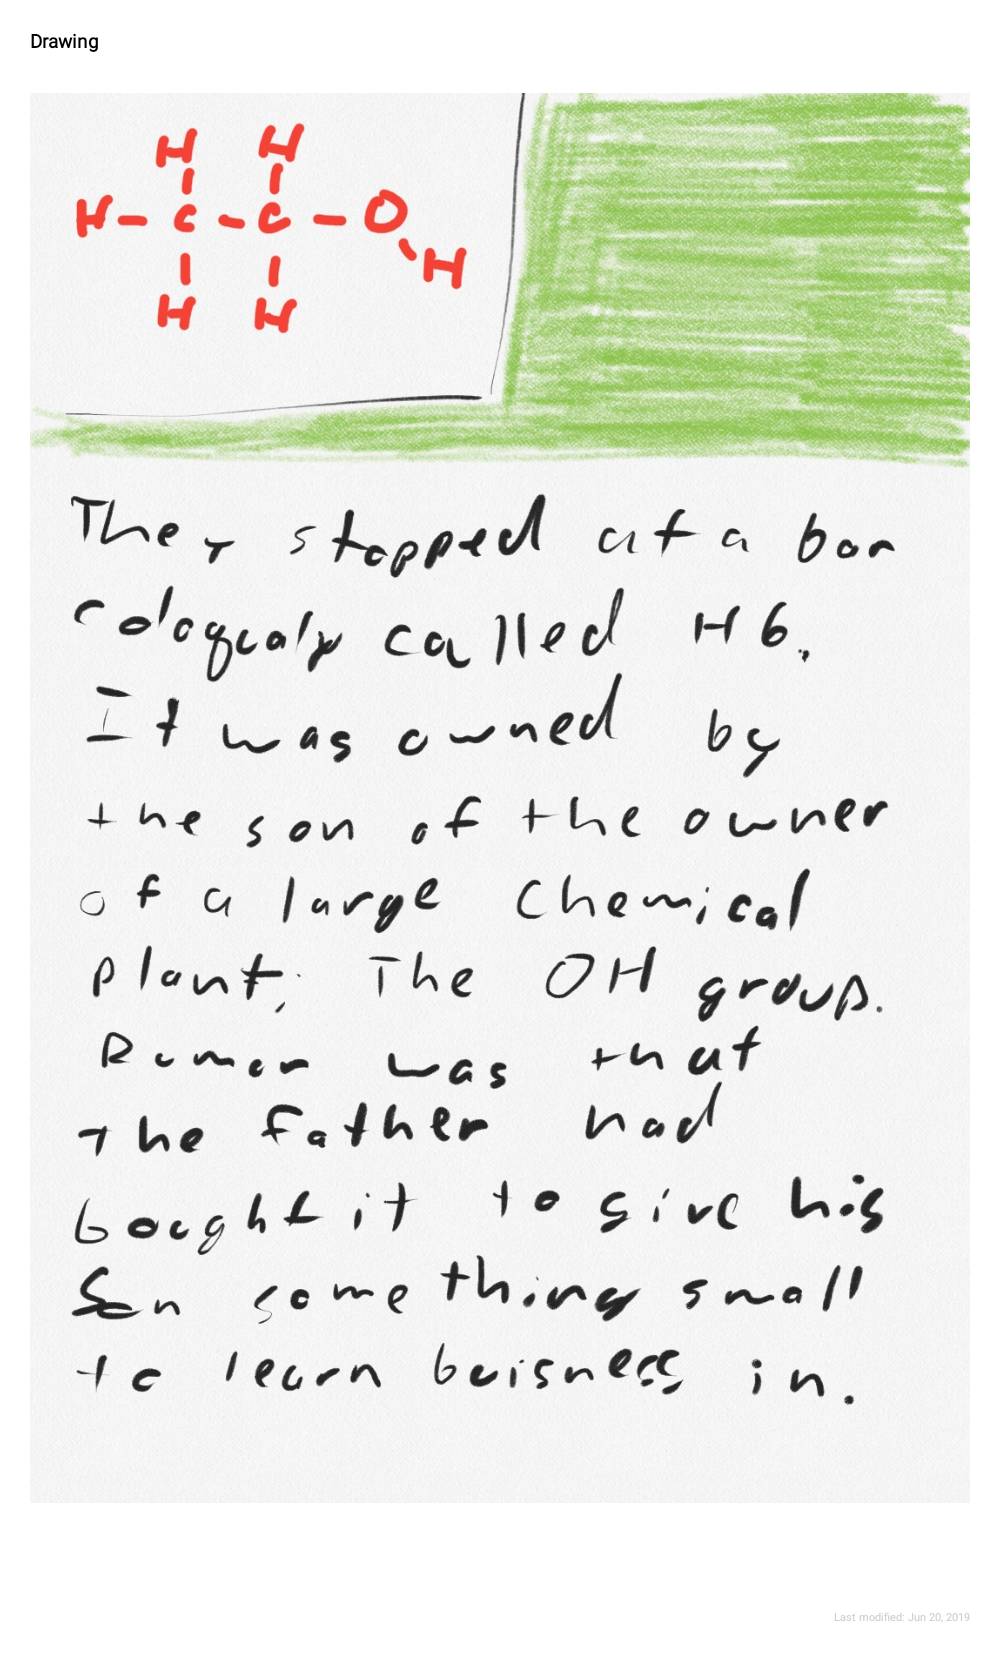 Drawing
H H
H - C - C - O
H
H H
They stopped at a bar
coloqualy called H6.
It was owned by
the son of the owner
of a large chemical
plant; The OH group.
Rumor was that
the father had
bought it to give his
Son something small
to learn buisness in.
Last modified: Jun 20, 2019